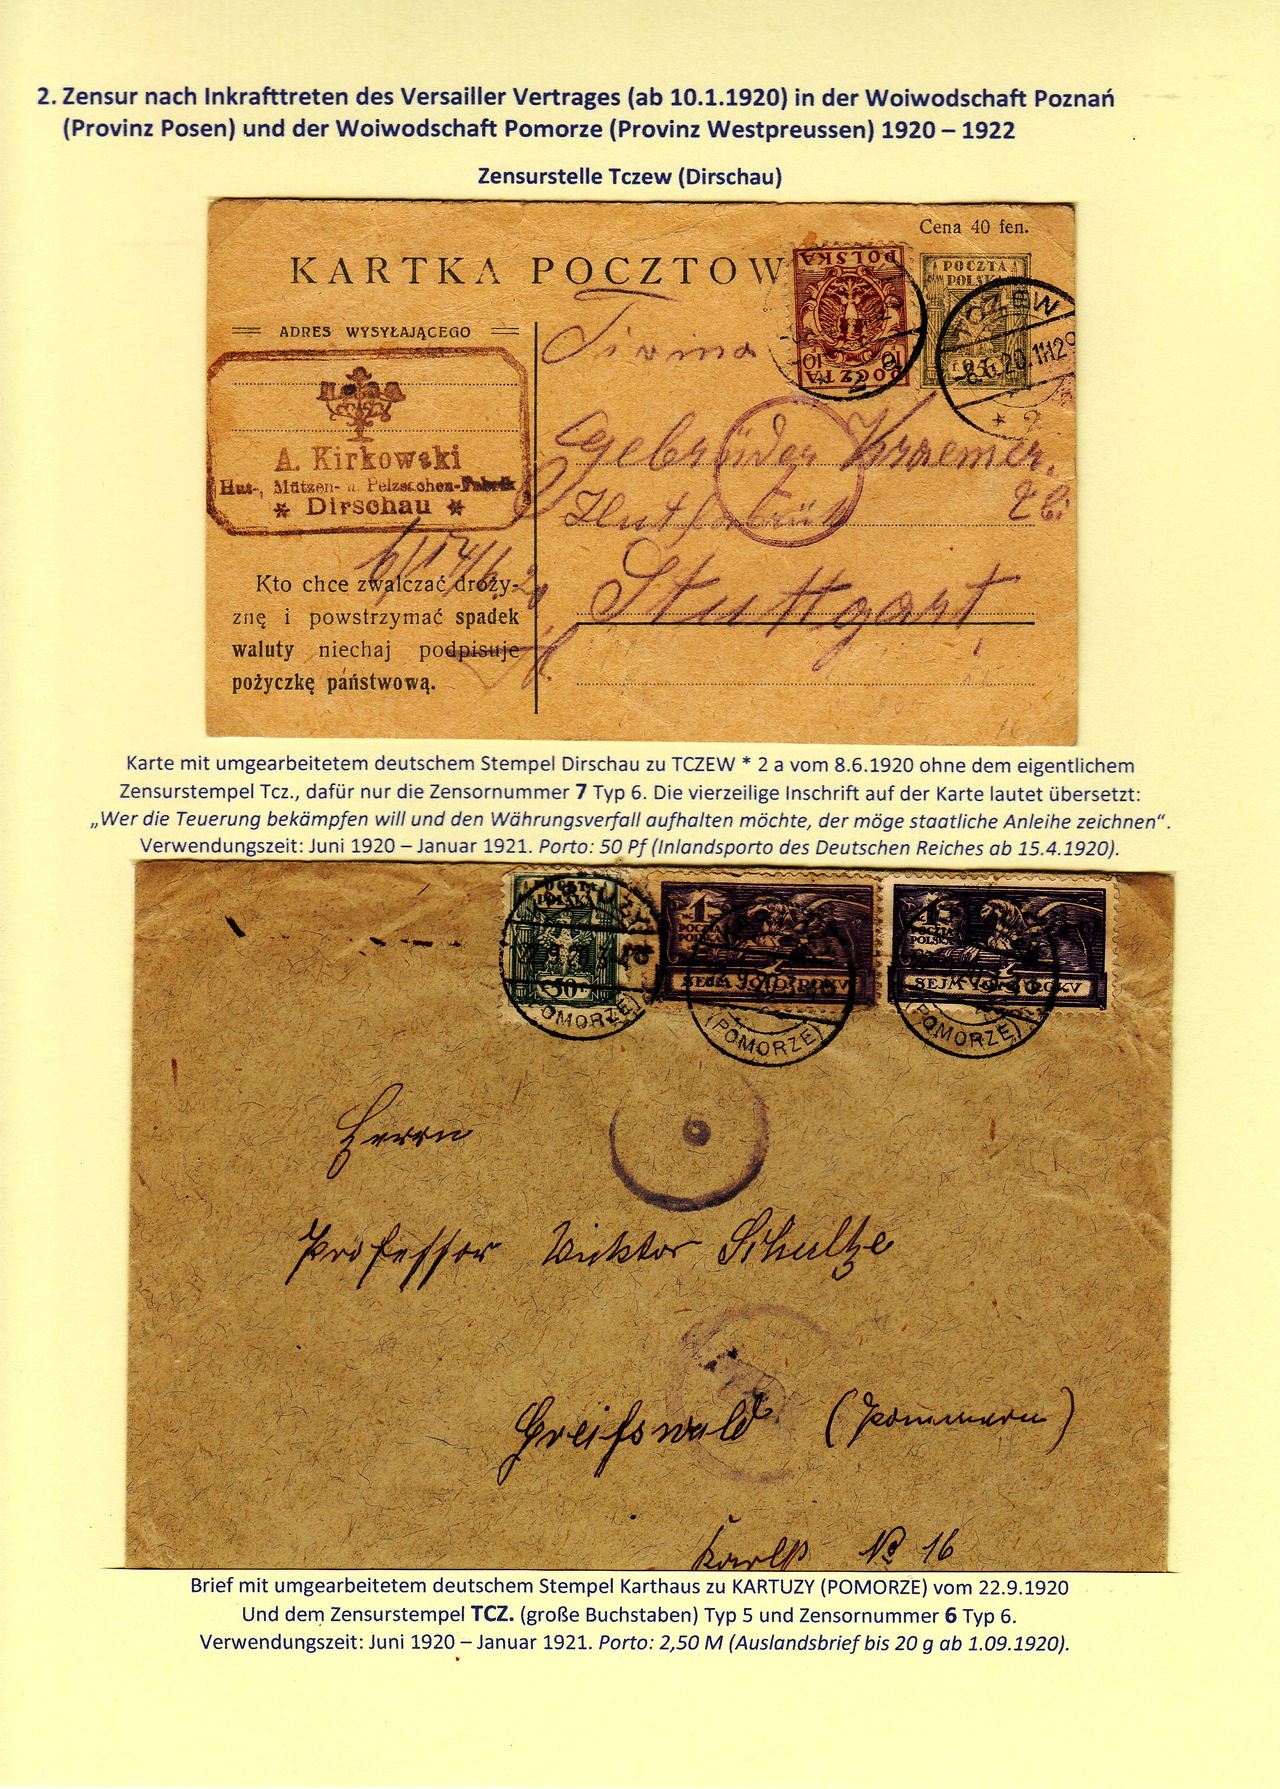 2. Zensur nach Inkrafttreten des Versailler Vertrages (ab 10.1.1920) in der Woiwodschaft Poznań
(Provinz Posen) und der Woiwodschaft Pomorze (Provinz Westpreussen) 1920 – 1922
Zensurstelle Tczew (Dirschau)
Cena 40 fen.
KARTKA POCZTOW
POCZTA
POLSKA
POCZTA
POLSKA
10 10
TCZEW
8.6.20.11-12
* 2
ADRES WYSYŁAJĄCEGO
A. Kirkowski
Hut-, Mützen- u. Pelzsachen-Fabrik
* Dirschau *
Firma
Gebrüder Kraemer,
Stuttgart
Kto chce zwalczać droży-
znę i powstrzymać spadek
waluty niechaj podpisuje
pożyczkę państwową.
Karte mit umgearbeitetem deutschem Stempel Dirschau zu TCZEW * 2 a vom 8.6.1920 ohne dem eigentlichem
Zensurstempel Tcz., dafür nur die Zensornummer 7 Typ 6. Die vierzeilige Inschrift auf der Karte lautet übersetzt:
„Wer die Teuerung bekämpfen will und den Währungsverfall aufhalten möchte, der möge staatliche Anleihe zeichnen“.
Verwendungszeit: Juni 1920 – Januar 1921. Porto: 50 Pf (Inlandsporto des Deutschen Reiches ab 15.4.1920).
POCZTA
POLSKA
50
(POMORZE)
1
POCZTA
POLSKA
SEJM
(POMORZE)
1
POCZTA
POLSKA
SEJM
(POMORZE)
Herrn
Professor Viktor Schultze
Greifswald (Pommern)
Karlst No 16
Brief mit umgearbeitetem deutschem Stempel Karthaus zu KARTUZY (POMORZE) vom 22.9.1920
Und dem Zensurstempel TCZ. (große Buchstaben) Typ 5 und Zensornummer 6 Typ 6.
Verwendungszeit: Juni 1920 – Januar 1921. Porto: 2,50 M (Auslandsbrief bis 20 g ab 1.09.1920).